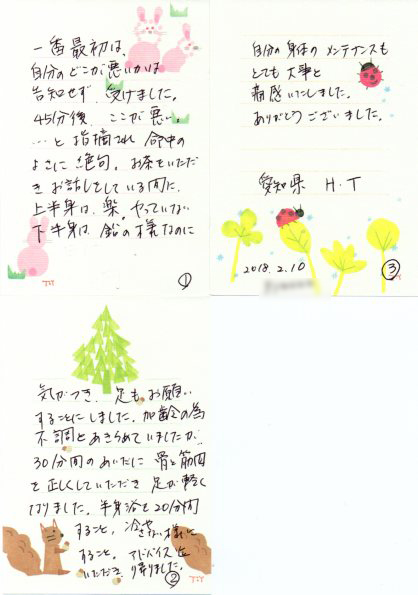 一番最初は、
自分のどこが悪いかは
告知せず 受けました。
45分後、ここが悪い、
…と 指摘され 命中の
よさに 絶句。お茶をいただ
き お話しをしている間に、
上半身は、楽。やっていない
下半身は、鉛の様なのに
①
気がつき、足も お願い
することにしました。加齢の為
不調とあきらめていましたが、
30分間のあいだに 骨と筋肉
を正しくしていただき 足が軽く
なりました。半身浴を20分間
すること、冷やさない様に
すること。アドバイスを
いただき 帰りました。
②
自分の身体の メンテナンスも
とても 大事と
痛感いたしました。
ありがとう ございました。
愛知県 H.T
2018.2.10
③